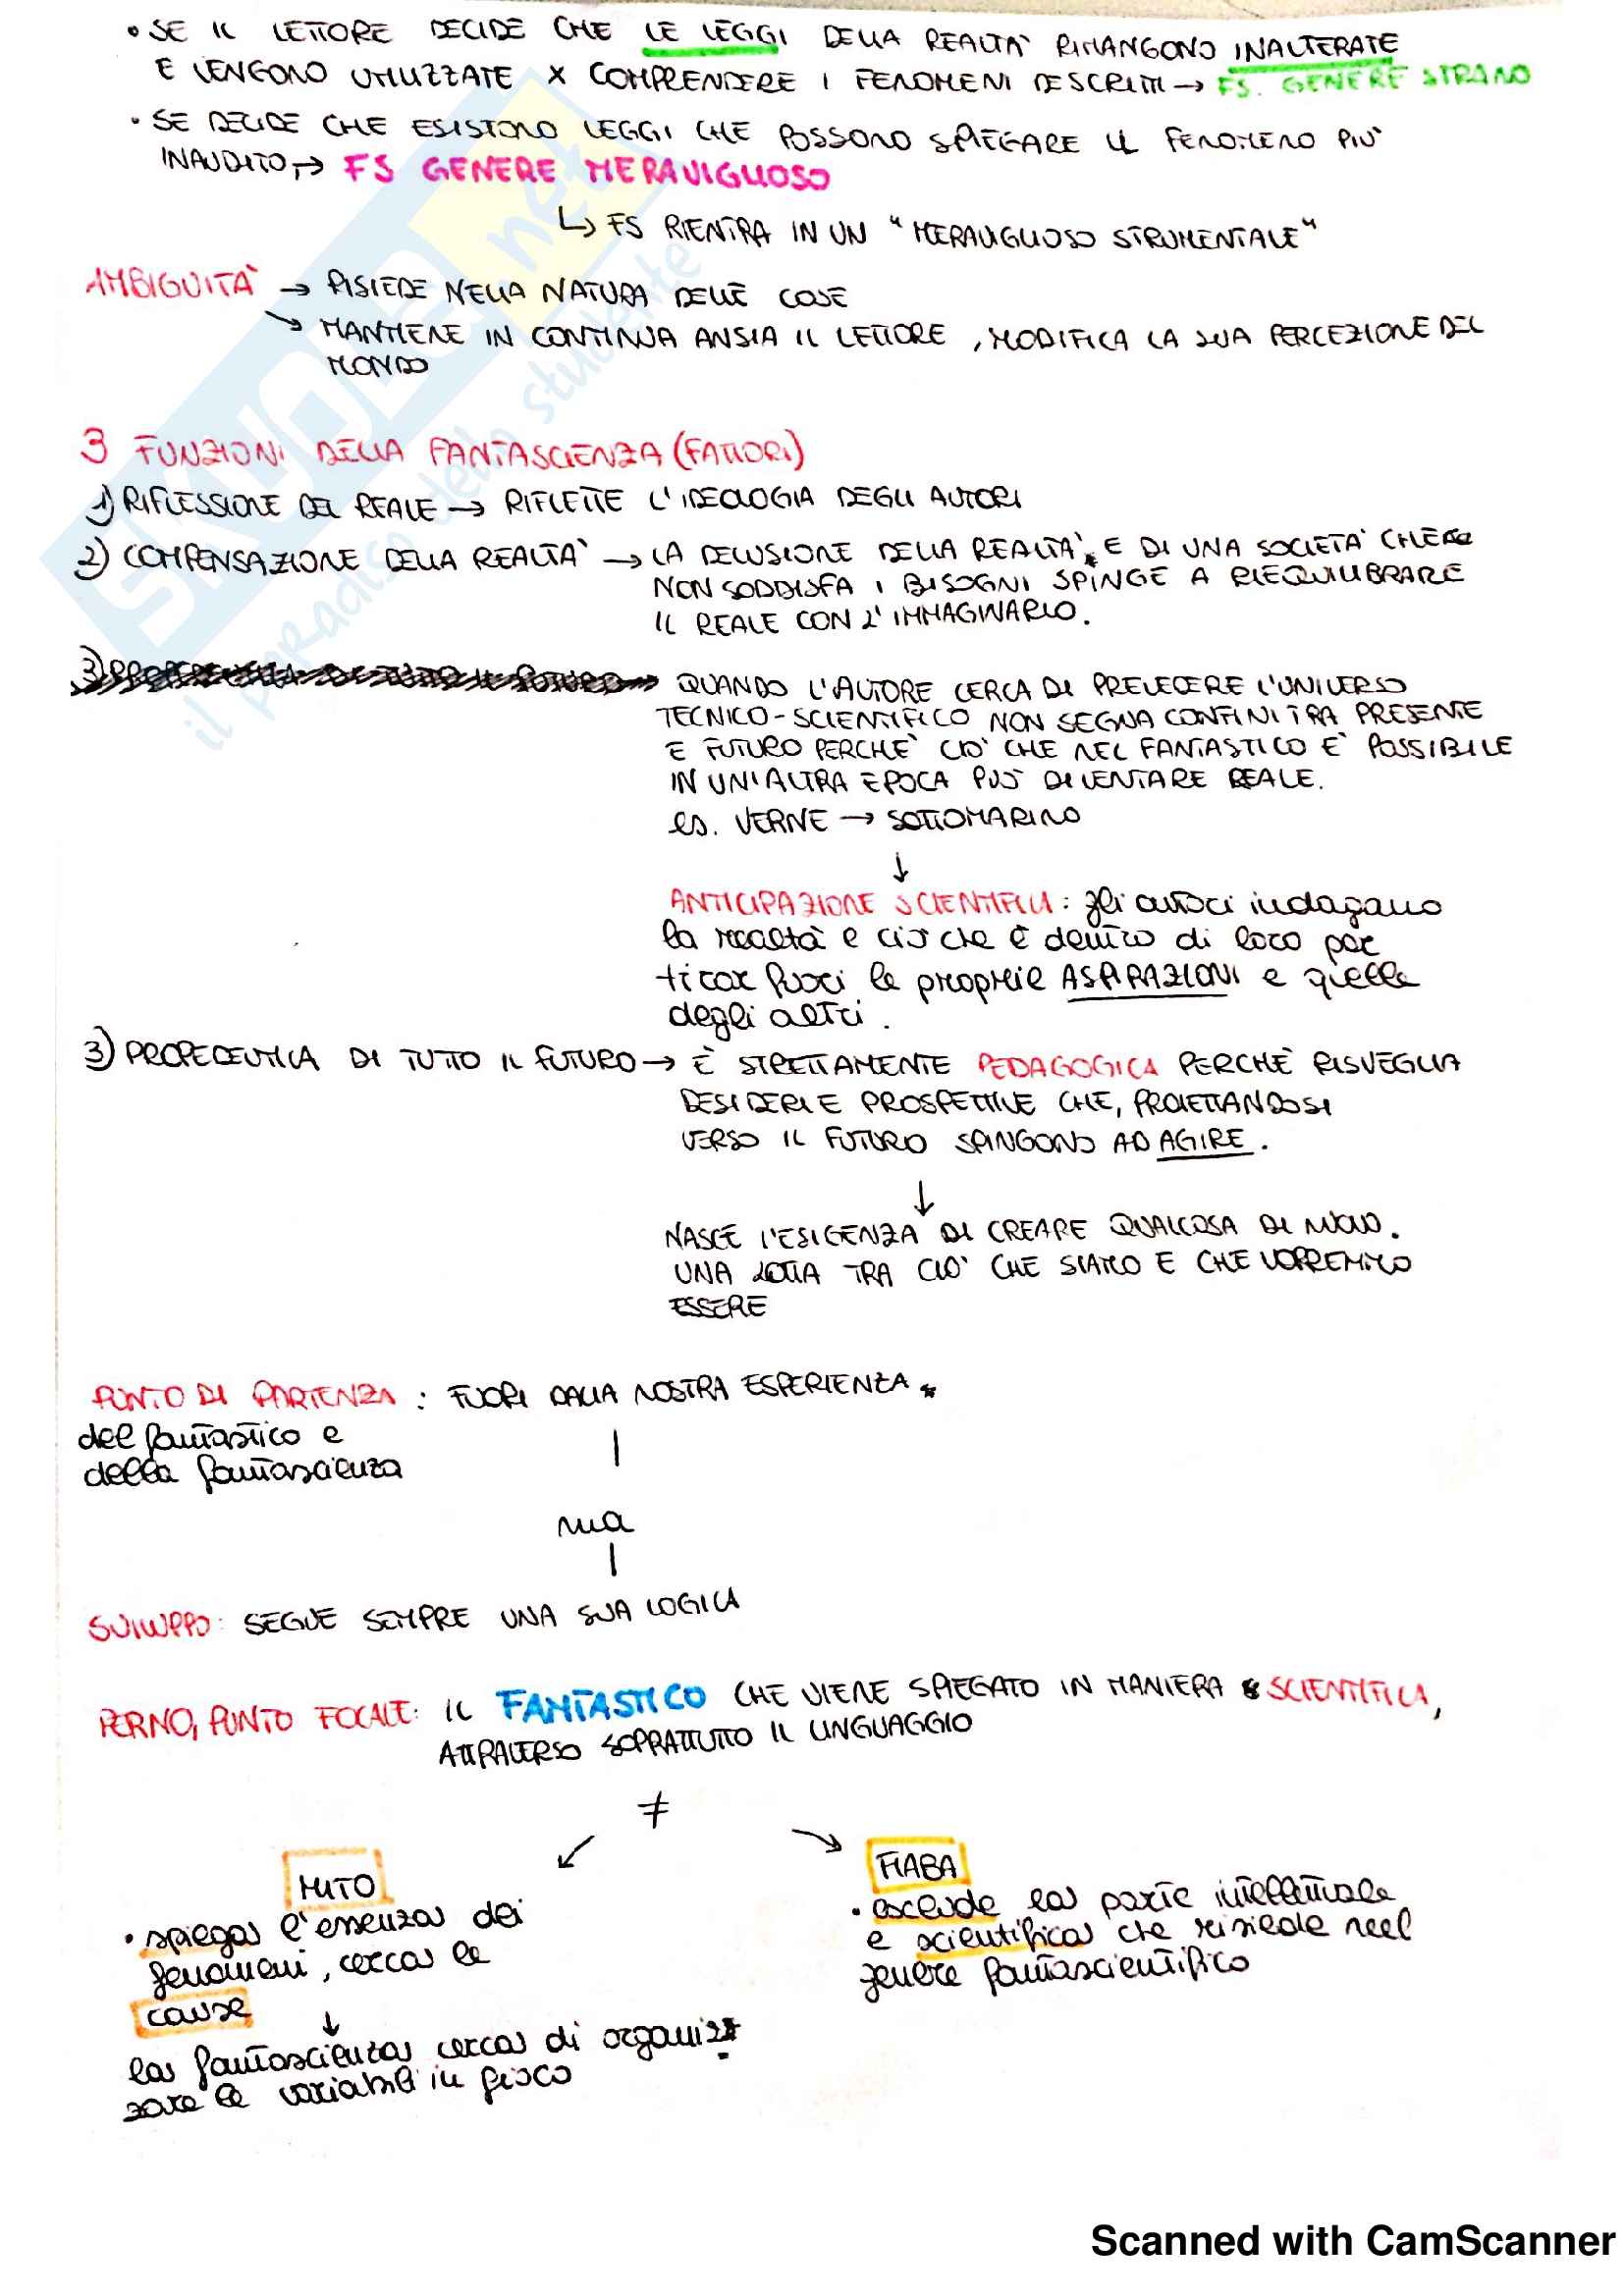 • SE IL LETTORE DECIDE CHE LE LEGGI DELLA REALTÀ RIMANGONO INALTERATE
E VENGONO UTILIZZATE X COMPRENDERE I FENOMENI DESCRITTI → FS. GENERE STRANO
• SE DECIDE CHE ESISTONO LEGGI CHE POSSONO SPIEGARE IL FENOMENO PIÙ
INAUDITO, → FS GENERE MERAVIGLIOSO
↳ FS RIENTRA IN UN "MERAVIGLIOSO STRUMENTALE"
AMBIGUITÀ → RISIEDE NELLA NATURA DELLE COSE
→ MANTIENE IN CONTINUA ANSIA IL LETTORE, MODIFICA LA SUA PERCEZIONE DEL
MONDO
3 FUNZIONI DELLA FANTASCIENZA (FATTORI)
1) RIFLESSIONE DEL REALE → RIFLETTE L'IDEOLOGIA DEGLI AUTORI
2) COMPENSAZIONE DELLA REALTÀ → LA DELUSIONE DELLA REALTÀ E DI UNA SOCIETÀ CHE
NON SODDISFA I BISOGNI SPINGE A RIEQUILIBRARE
IL REALE CON L'IMMAGINARIO.
3) → QUANDO L'AUTORE CERCA DI PREVEDERE L'UNIVERSO
TECNICO-SCIENTIFICO NON SEGNA CONFINI TRA PRESENTE
E FUTURO PERCHÈ CIÒ CHE NEL FANTASTICO È POSSIBILE
IN UN'ALTRA EPOCA PUÒ DIVENTARE REALE.
es. VERNE → SOTTOMARINO
↓
ANTICIPAZIONE SCIENTIFICA: gli autori indagano
la realtà e ciò che è dentro di loro per
tirar fuori le proprie ASPIRAZIONI e quelle
degli altri.
3) PROPEDEUTICA DI TUTTO IL FUTURO → È STRETTAMENTE PEDAGOGICA PERCHÈ RISVEGLIA
DESIDERI E PROSPETTIVE CHE, PROIETTANDOSI
VERSO IL FUTURO SPINGONO AD AGIRE.
↓
NASCE L'ESIGENZA DI CREARE QUALCOSA DI NUOVO.
UNA LOTTA TRA CIÒ CHE SIAMO E CHE VORREMMO
ESSERE
PUNTO DI PARTENZA: FUORI DALLA NOSTRA ESPERIENZA
del fantastico e
della fantascienza
ma
SVILUPPO: SEGUE SEMPRE UNA SUA LOGICA
PERNO, PUNTO FOCALE: IL FANTASTICO CHE VIENE SPIEGATO IN MANIERA SCIENTIFICA,
ATTRAVERSO SOPRATTUTTO IL LINGUAGGIO
≠
MITO
• spiega l'essenza dei
fenomeni, cerca le
cause
↓
la fantascienza cerca di organiz
zare le variabili in gioco
FIABA
• esclude la parte intellettuale
e scientifica che risiede nel
genere fantascientifico
SKUOLA.net
il paradiso dello studente
Scanned with CamScanner